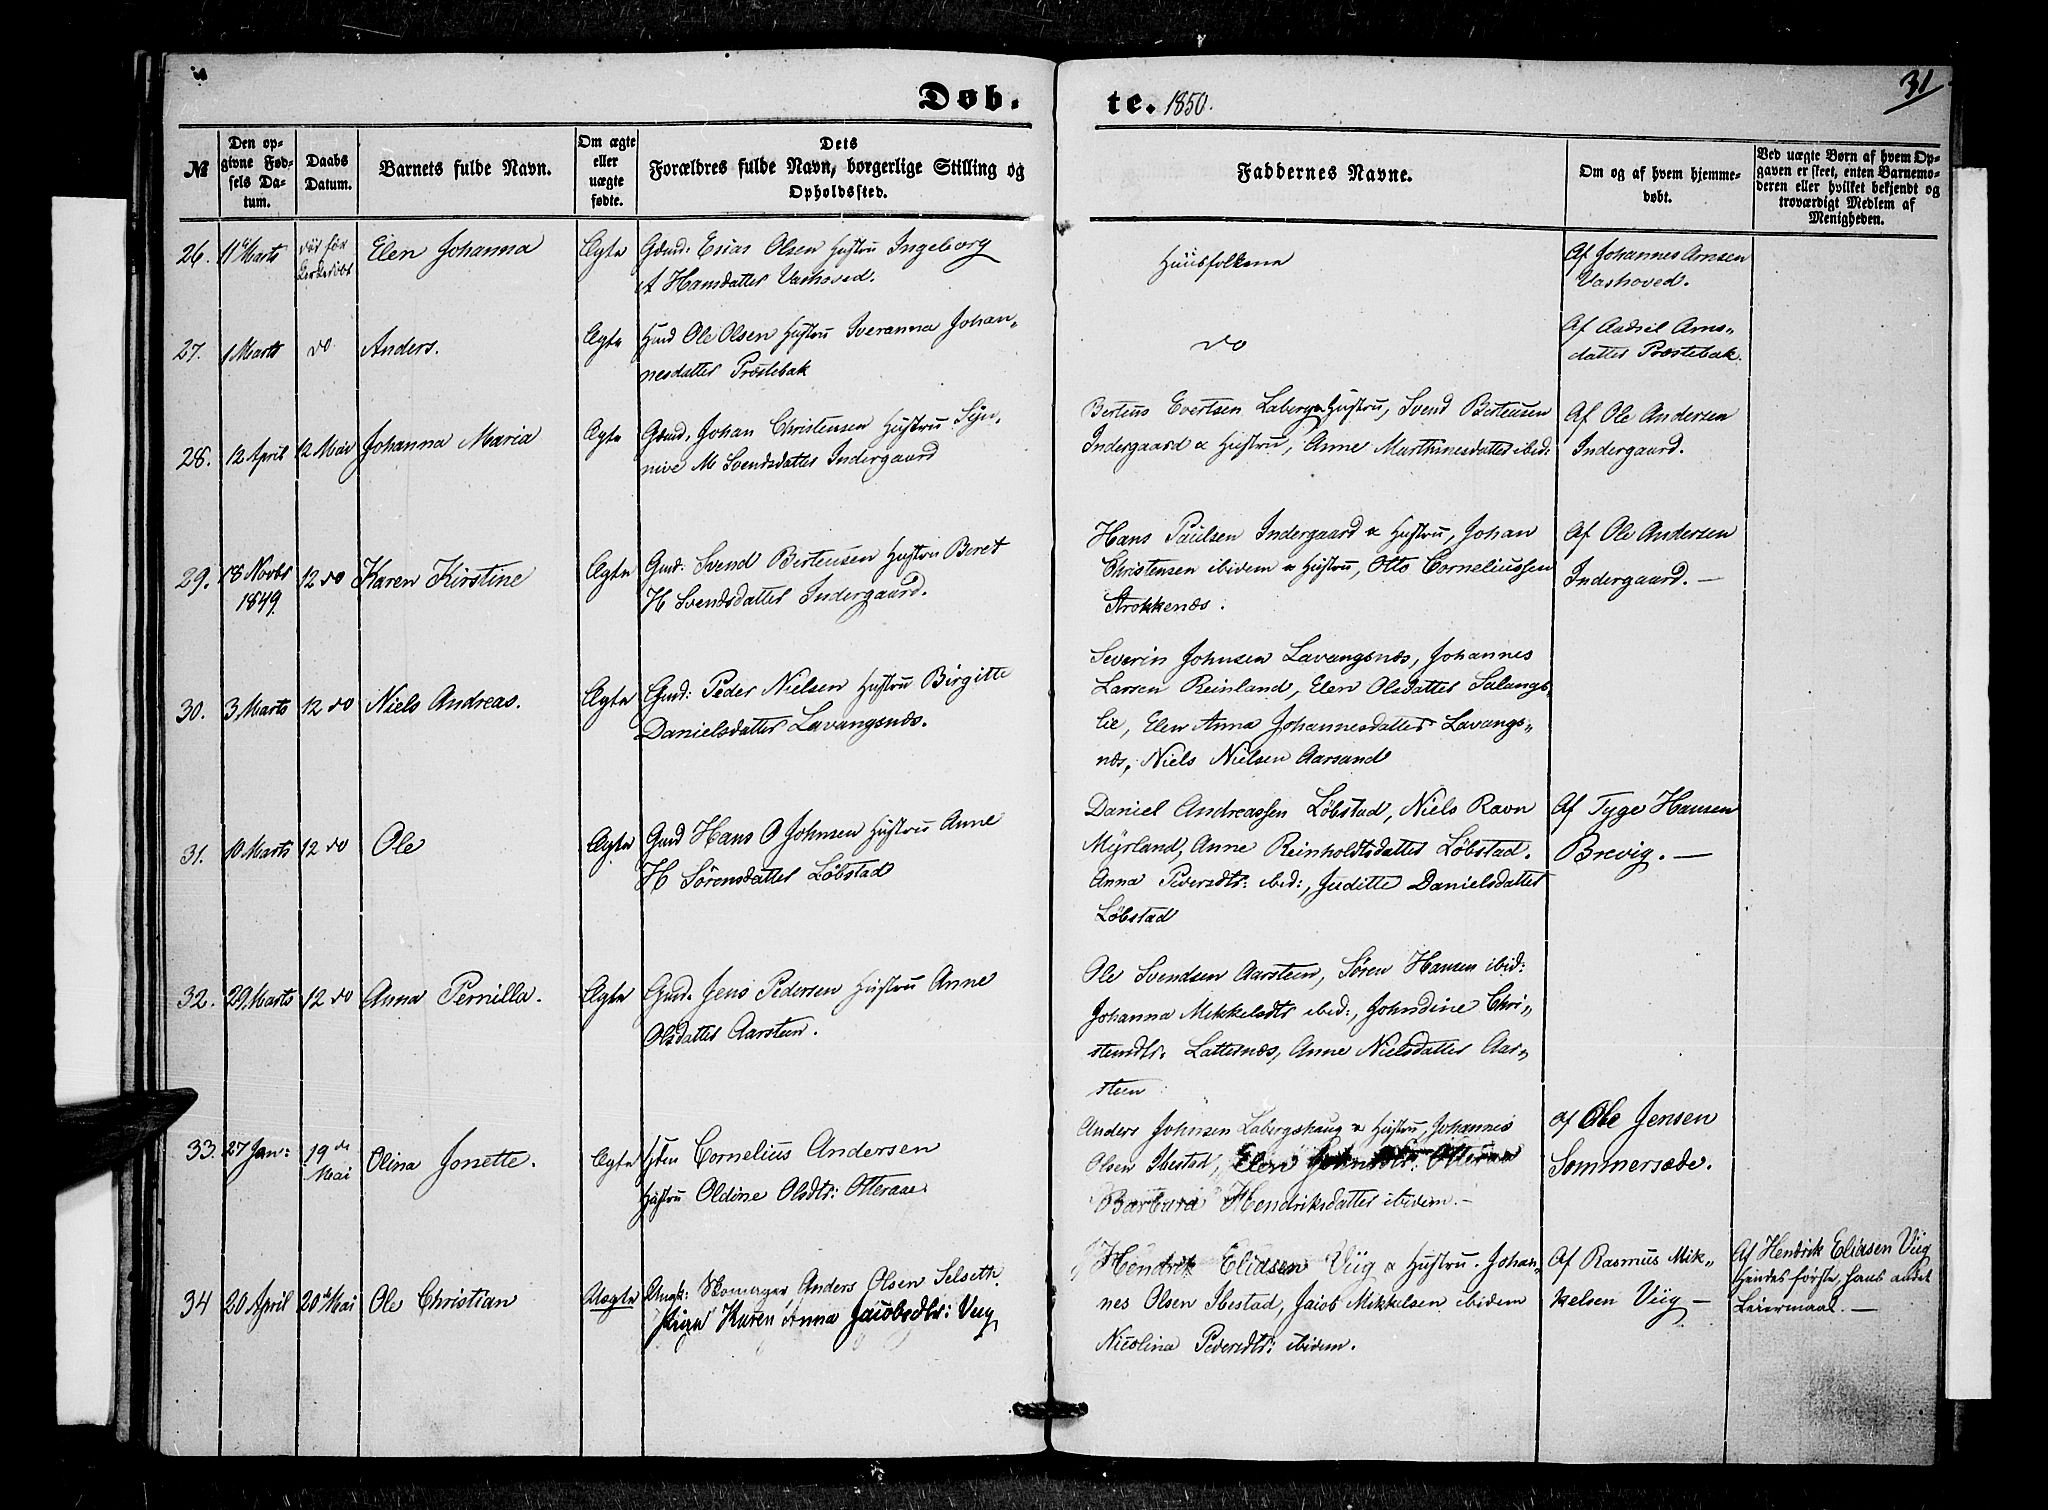 Døb.
te. 1850.
31
№
Den op-
givne Fød-
sels Da-
tum.
Daabs
Datum.
Barnets fulde Navn.
Om ægte
eller
uægte
fødte.
Dets
Forældres fulde Navn, borgerlige Stilling og
Opholdssted.
Faddernes Navne.
Om og af hvem hjemme-
døbt.
Ved uægte Børn af hvem Op-
gaven er skeet, enten Barnemo-
deren eller hvilket bekjendt og
troværdigt Medlem af
Menigheden.
26. 11 Marts død før Elen Johanna Ægte Gdmd. Esias Olsen Hustru Ingeborg
A Hansdatter Vashoved.
Huusfolkene
Af Johannes Arnsen
Vashoved.
27. 1 Marts do Anders. Ægte Hmd Ole Olsen Hustru Iveranna Johan-
nesdatter Præstebak
do
Af Arns-
datter Præstebak.
28. 12 April 12 Mai Johanna Maria Ægte Gdmd. Johan Christensen Hustru Syn-
nive M Svendsdatter Indergaard
Berteus Evertsen Laberg & Hustru, Svend Berteusen
Indergaard & Hustru, Anne Marthinesdatter ibid:
Af Ole Andersen
Indergaard.
29. 18 Novbr
1849. 12 do Karen Kirstine Ægte Gmd. Svend Berteusen Hustru Beret
H Svendsdatter Indergaard.
Hans Paulsen Indergaard & Hustru, Johan
Christensen ibidem & Hustru, Otto Corneliussen
Strokkenæs.
Af Ole Andersen
Indergaard. —
30. 3 Marts 12 do Niels Andreas. Ægte Gmd: Peder Nielsen Hustru Birgitte
Danielsdatter Lavangsnæs.
Severin Johnsen Lavangsnæs, Johannes
Larsen Reinland, Elen Olesdatter Salangs-
lie, Elen Anna Johannesdatter Lavangs-
næs, Niels Nielsen Aarsand
31. 10 Marts 12 do Ole Ægte Gmd Hans O Johnsen Hustru Anne
H Sörensdatter Löbstad
Daniel Andreassen Löbstad, Niels Ravn
Myrland, Anne Reinholdtsdatter Löbstad.
Anna Pedersdtr: ibid:, Juditte Danielsdatter
Löbstad
Af Tyge Hansen
Brevig. —
32. 29 Marts 12 do Anna Pernilla. Ægte Gmd. Jens Pedersen Hustru Anne
Olsdatter Aarsteen.
Ole Svendsen Aarsteen, Sören Hansen ibid:
Johanna Mikkelsdtr ibid:, Johndine Chri-
stensdtr. Latternæs, Anne Nielsdatter Aar-
steen
33. 27 Jan: 19de
Mai Olina Jonette. Ægte Cornelius Andersen
Hustru Oldine Olsdtr: Otteraae
Anders Johnsen Labergshaug & Hustru, Johannes
Olsen Ibestad, Elen
Barbara Hendriksdatter ibidem. —
af Ole Jensen
Sommersæde.
34 20 April 20de Mai Ole Christian Uægte Ungk: Skomager Anders Olsen Selseth.
Pige Karen Anna Jacobsdtr: Viig
Hendrik Eliasen Viig & Hustru. Johan-
nes Olsen Ibestad, Jacob Mikkelsen ibidem
Nicolina Pedersdtr: ibidem.
Af Rasmus Mik-
kelsen Viig —
Af Hendrik Eliasen Viig
Hendes første, hans andet
Leiermaal. —